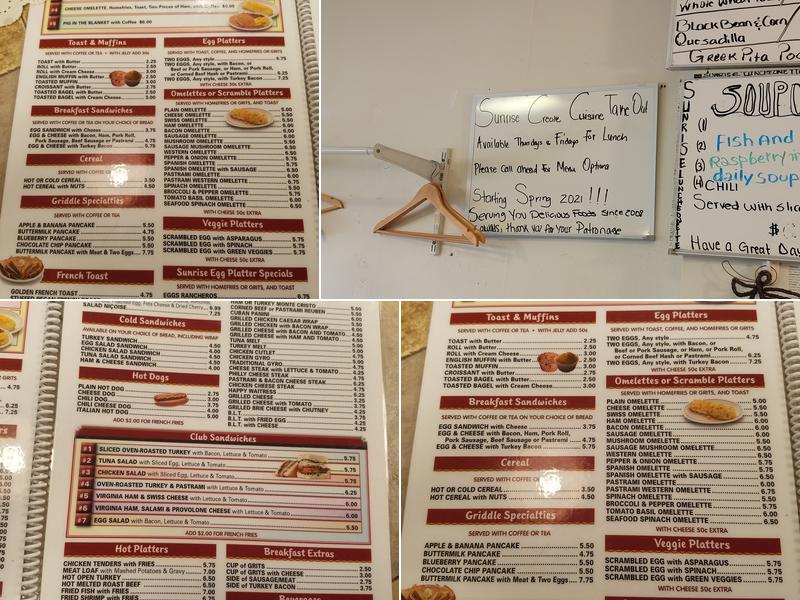 CHEESE OMELETTE, Homefries, Toast, Two Pieces of Ham, with Coffee
#5 PIG IN THE BLANKET with Coffee $6.00
Toast & Muffins
SERVED WITH COFFEE OR TEA • WITH JELLY ADD 50¢
TOAST with Butter 2.25
ROLL with Butter 2.50
ROLL with Cream Cheese 3.00
ENGLISH MUFFIN with Butter 2.50
TOASTED MUFFIN 3.00
CROISSANT with Butter 2.75
TOASTED BAGEL with Butter 2.50
TOASTED BAGEL with Cream Cheese 3.00
Breakfast Sandwiches
SERVED WITH COFFEE OR TEA ON YOUR CHOICE OF BREAD
EGG SANDWICH with Cheese 3.75
EGG & CHEESE with Bacon, Ham, Pork Roll,
Pork Sausage, Beef Sausage or Pastrami 4.75
EGG & CHEESE with Turkey Bacon 5.75
Cereal
SERVED WITH COFFEE
HOT OR COLD CEREAL 3.50
HOT CEREAL with NUTS 4.50
Griddle Specialties
SERVED WITH COFFEE OR TEA
APPLE & BANANA PANCAKE 5.50
BUTTERMILK PANCAKE 4.75
BLUEBERRY PANCAKE 5.50
CHOCOLATE CHIP PANCAKE 5.50
BUTTERMILK PANCAKE with Meat & Two Eggs 7.75
French Toast
GOLDEN FRENCH TOAST 4.75
Egg Platters
SERVED WITH TOAST, COFFEE, AND HOMEFRIES OR GRITS
TWO EGGS, Any style 4.75
TWO EGGS, Any Style, with Bacon, or
Beef or Pork Sausage, or Ham, or Pork Roll,
or Corned Beef Hash or Pastrami 6.25
TWO EGGS, Any style, with Turkey Bacon 7.25
WITH CHEESE 50¢ EXTRA
Omelettes or Scramble Platters
SERVED WITH HOMEFRIES OR GRITS, AND TOAST
PLAIN OMELETTE 5.00
CHEESE OMELETTE 5.50
SWISS OMELETTE 5.50
HAM OMELETTE 6.00
BACON OMELETTE 6.00
SAUSAGE OMELETTE 6.00
MUSHROOM OMELETTE 5.50
SAUSAGE MUSHROOM OMELETTE 6.50
WESTERN OMELETTE 6.00
PEPPER & ONION OMELETTE 5.75
SPANISH OMELETTE 5.75
SPANISH OMELETTE with SAUSAGE 6.50
PASTRAMI OMELETTE 6.00
PASTRAMI WESTERN OMELETTE 6.75
SPINACH OMELETTE 5.50
BROCCOLI & PEPPER OMELETTE 5.75
TOMATO BASIL OMELETTE 6.00
SEAFOOD SPINACH OMELETTE 6.50
WITH CHEESE 50¢ EXTRA
Veggie Platters
SCRAMBLED EGG with ASPARAGUS 5.75
SCRAMBLED EGG with SPINACH 5.75
SCRAMBLED EGG with GREEN VEGGIES 5.75
WITH CHEESE 50¢ EXTRA
Sunrise Egg Platter Specials
EGGS RANCHEROS
Sunrise Creole Cuisine Take Out
Available Thursdays & Fridays for Lunch
Please Call Ahead for Menu Options
Starting Spring 2021 !!!
Serving You Delicious Foods since 2008
Always, Thank You For Your Patronage
Black Bean & Corn
Quesadilla
Greek Pita
SUNRISE LUNCHEONETTE
SOUP
(1)
(2) Fish And
(3) Raspberry
daily soup
(4) CHILI
Served with
Have a Great Day
SALAD NIÇOISE 7.25
Cold Sandwiches
AVAILABLE ON YOUR CHOICE OF BREAD, INCLUDING WRAP
TURKEY SANDWICH 4.50
EGG SALAD SANDWICH 4.00
CHICKEN SALAD SANDWICH 4.00
TUNA SALAD SANDWICH 4.00
HAM & CHEESE SANDWICH 4.00
Hot Dogs
PLAIN HOT DOG 2.75
CHEESE DOG 3.00
CHILI DOG 3.50
CHILI CHEESE DOG 3.75
ITALIAN HOT DOG 4.00
ADD $2.00 FOR FRENCH FRIES
HAM OR TURKEY MONTE CRISTO
CORNED BEEF or PASTRAMI REUBEN
CUBAN PANINI
GRILLED CHICKEN CAESAR WRAP
GRILLED CHICKEN with BACON WRAP
GRILLED CHEESE with BACON and TOMATO
GRILLED CHEESE with HAM and TOMATO
TUNA MELT
TURKEY MELT
GRILLED CHICKEN
CHICKEN CUTLET
CHICKEN GYRO
TRADITIONAL GYRO
CHEESE STEAK with LETTUCE & TOMATO
PHILLY CHEESE STEAK
PASTRAMI & BACON CHEESE STEAK
CHICKEN CHEESE STEAK
HAPPY WAITRESS
GRILLED CHEESE
GRILLED CHEESE with TOMATO
GRILLED BRIE CHEESE with CHUTNEY
B.L.T.
B.L.T. with FRIED EGG
B.L.T. with CHEESE
Club Sandwiches
#1 SLICED OVEN-ROASTED TURKEY with Bacon, Lettuce & Tomato 5.75
#2 TUNA SALAD with Sliced Egg, Lettuce & Tomato 5.75
#3 CHICKEN SALAD with Sliced Egg, Lettuce & Tomato 5.75
#4 OVEN-ROASTED TURKEY & PASTRAMI with Lettuce & Tomato 6.25
#5 VIRGINIA HAM & SWISS CHEESE with Lettuce & Tomato 6.00
#6 VIRGINIA HAM, SALAMI & PROVOLONE CHEESE with Lettuce & Tomato 6.00
#7 EGG SALAD with Bacon, Lettuce & Tomato 5.50
ADD $2.00 FOR FRENCH FRIES
Hot Platters
CHICKEN TENDERS with FRIES 5.75
MEAT LOAF with Mashed Potatoes & Gravy 7.00
HOT OPEN TURKEY 6.50
HOT MELTED ROAST BEEF 6.50
FRIED FISH with FRIES 7.00
FRIED SHRIMP with FRIES
Breakfast Extras
CUP OF GRITS 2.50
CUP OF GRITS with CHEESE 3.00
SIDE of SAUSAGE/MEAT 2.75
SIDE of TURKEY BACON 3.75
Beverages
Toast & Muffins
SERVED WITH COFFEE OR TEA • WITH JELLY ADD 50¢
TOAST with Butter 2.25
ROLL with Butter 2.50
ROLL with Cream Cheese 3.00
ENGLISH MUFFIN with Butter 2.50
TOASTED MUFFIN 3.00
CROISSANT with Butter 2.75
TOASTED BAGEL with Butter 2.50
TOASTED BAGEL with Cream Cheese 3.00
Breakfast Sandwiches
SERVED WITH COFFEE OR TEA ON YOUR CHOICE OF BREAD
EGG SANDWICH with Cheese 3.75
EGG & CHEESE with Bacon, Ham, Pork Roll,
Pork Sausage, Beef Sausage or Pastrami 4.75
EGG & CHEESE with Turkey Bacon 5.75
Cereal
SERVED WITH COFFEE
HOT OR COLD CEREAL 3.50
HOT CEREAL with NUTS 4.50
Griddle Specialties
SERVED WITH COFFEE OR TEA
APPLE & BANANA PANCAKE 5.50
BUTTERMILK PANCAKE 4.75
BLUEBERRY PANCAKE 5.50
CHOCOLATE CHIP PANCAKE 5.50
BUTTERMILK PANCAKE with Meat & Two Eggs 7.75
Egg Platters
SERVED WITH TOAST, COFFEE, AND HOMEFRIES OR GRITS
TWO EGGS, Any style 4.75
TWO EGGS, Any Style, with Bacon, or
Beef or Pork Sausage, or Ham, or Pork Roll,
or Corned Beef Hash or Pastrami 6.25
TWO EGGS, Any style, with Turkey Bacon 7.25
WITH CHEESE 50¢ EXTRA
Omelettes or Scramble Platters
SERVED WITH HOMEFRIES OR GRITS, AND TOAST
PLAIN OMELETTE 5.00
CHEESE OMELETTE 5.50
SWISS OMELETTE 5.50
HAM OMELETTE 6.00
BACON OMELETTE 6.00
SAUSAGE OMELETTE 6.00
MUSHROOM OMELETTE 5.50
SAUSAGE MUSHROOM OMELETTE 6.50
WESTERN OMELETTE 6.00
PEPPER & ONION OMELETTE 5.75
SPANISH OMELETTE 5.75
SPANISH OMELETTE with SAUSAGE 6.50
PASTRAMI OMELETTE 6.00
PASTRAMI WESTERN OMELETTE 6.75
SPINACH OMELETTE 5.50
BROCCOLI & PEPPER OMELETTE 5.75
TOMATO BASIL OMELETTE 6.00
SEAFOOD SPINACH OMELETTE 6.50
WITH CHEESE 50¢ EXTRA
Veggie Platters
SCRAMBLED EGG with ASPARAGUS 5.75
SCRAMBLED EGG with SPINACH 5.75
SCRAMBLED EGG with GREEN VEGGIES 5.75
WITH CHEESE 50¢ EXTRA